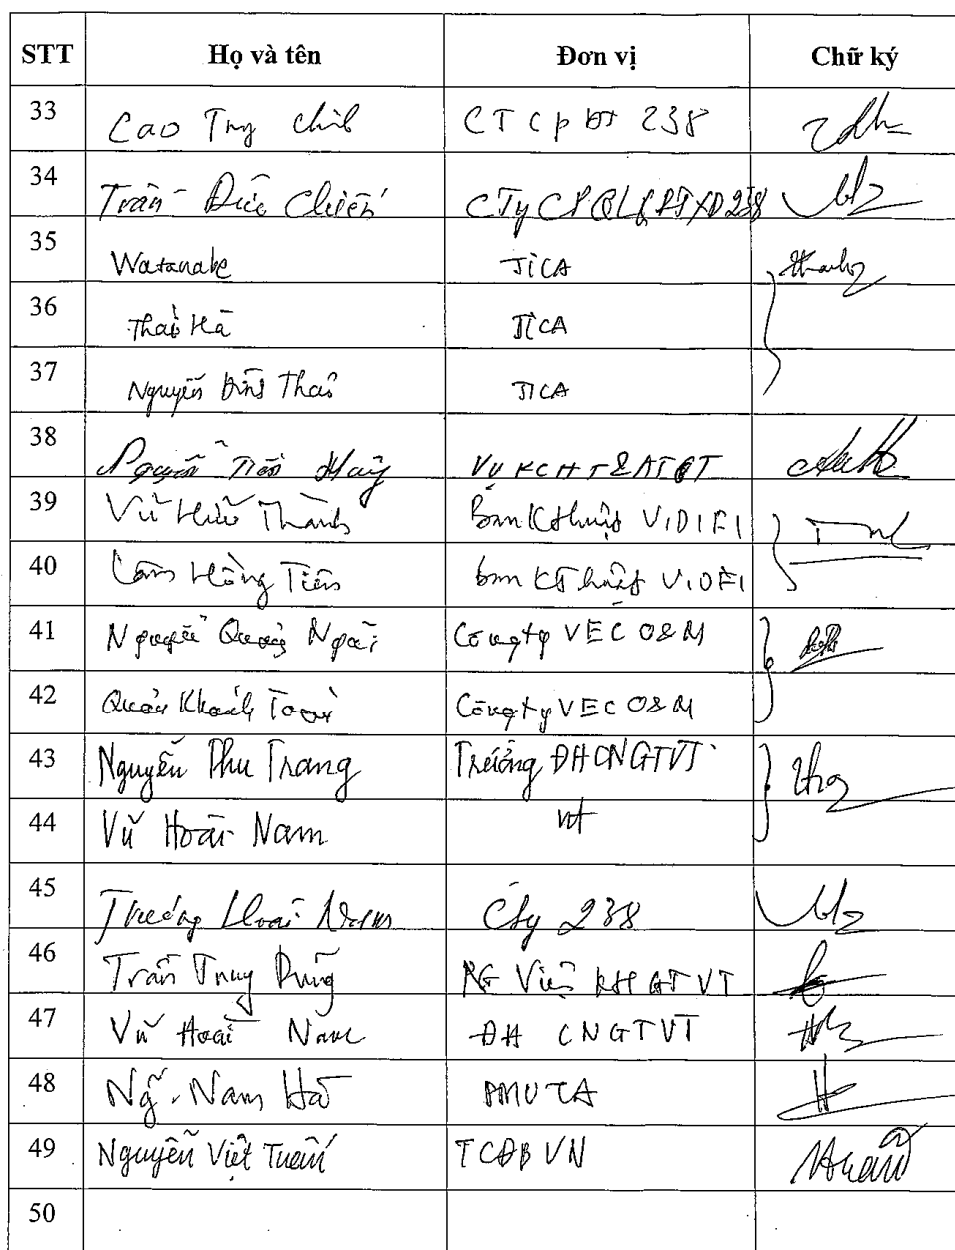 STT Họ và tên Đơn vị Chữ ký
33 Cao Trg CTCP ĐT 238
34 Trần Đức Chiến CTy CP QL&ĐTXD 238
35 Watanabe JICA
36 Thái Hà JICA
37 Nguyễn Thái JICA
38 Nguyễn Tiến Vụ KCHT&ATGT
39 Vũ Hữu Thành Ban Kthuật VIDIFI
40 Hồng Tiến ban Kthuật VIDIFI
41 Nguyễn Quang Ngãi Công ty VEC O&M
42 Quản Khánh Toàn Công ty VEC O&M
43 Nguyễn Thu Trang Trường ĐHCNGTVT
44 Vũ Hoài Nam nt
45 Trương Hoài Nam Cty 238
46 Trần Trung Dũng Viện KH GTVT
47 Vũ Hoài Nam ĐH CNGTVT
48 Ng~. Nam Hà PMU
49 Nguyễn Việt Tuấn TCĐBVN
50